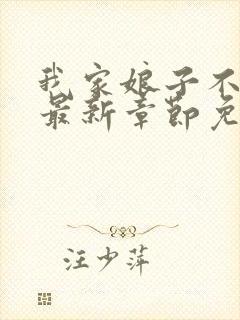 我家娘子不
最新章节免
汪少萍